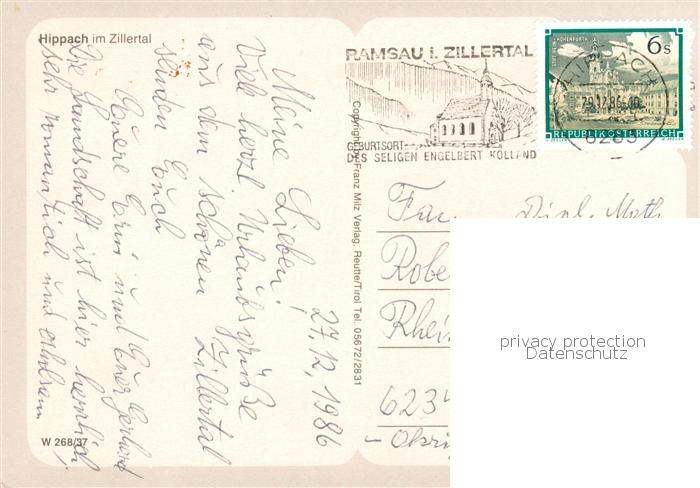 Hippach im Zillertal
27.12.1986
Meine Lieben!
Viele herzl. Urlaubsgrüße
aus dem schönen Zillertal
senden Euch
Euere Erni und Euer Gerhard
Die Landschaft ist hier herrlich,
sehr romantisch und erholsam
W 268/37
Copyright by Franz Milz Verlag, Reutte/Tirol Tel. 05672/2831
RAMSAU i. ZILLERTAL
GEBURTSORT
DES SELIGEN ENGELBERT KOLLAND
STIFT REIN-HOHENFURTH
6 s
REPUBLIK ÖSTERREICH
HIPPACH
29.12.86
6283
Fam. Dipl. Math
Robe
Rhein
6234
privacy protection
Datenschutz